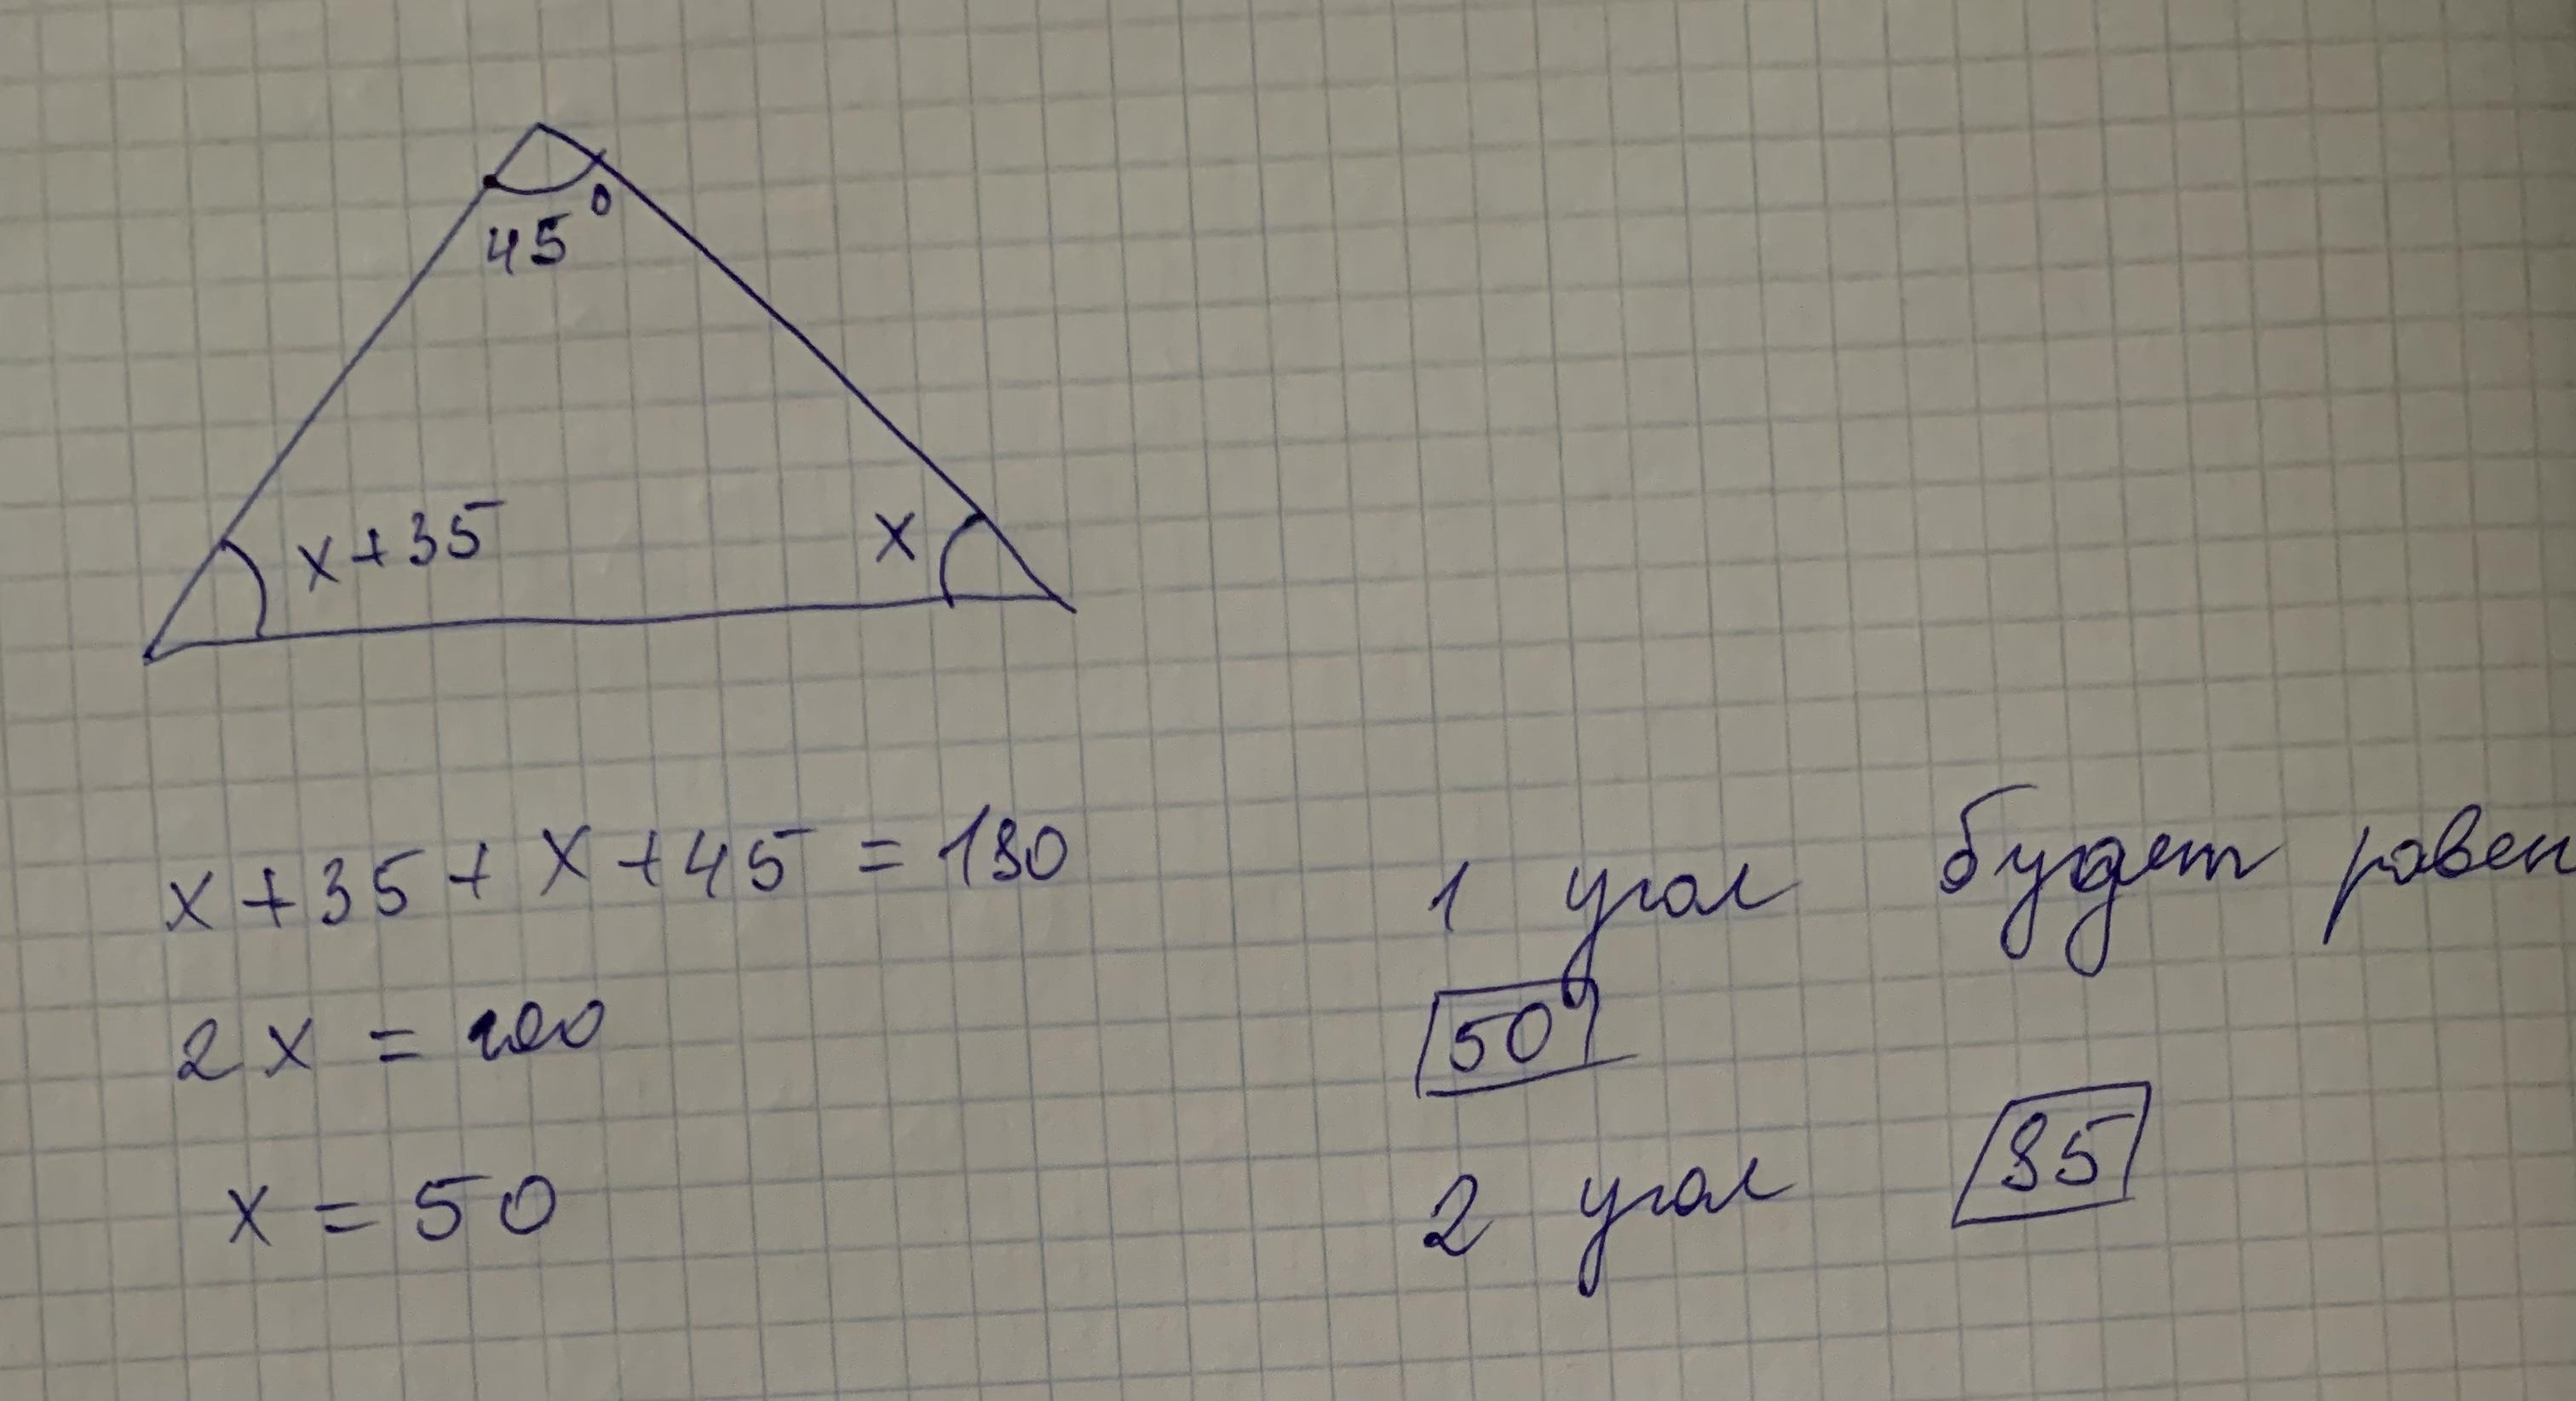 45°
x+35
x
x+35+x+45=180
2x=100
x=50
1 угол будет равен
50°
2 угол 85